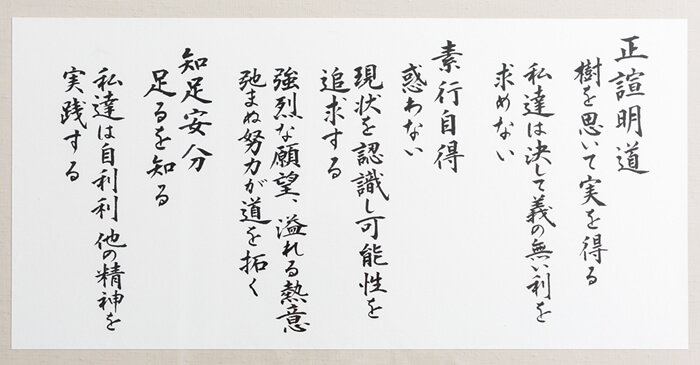 正誼明道
樹を思いて実を得る
私達は決して義の無い利を
求めない
素行自得
惑わない
現状を認識し可能性を
追求する
強烈な願望、溢れる熱意
弛まぬ努力が道を拓く
知足安分
足るを知る
私達は自利利他の精神を
実践する